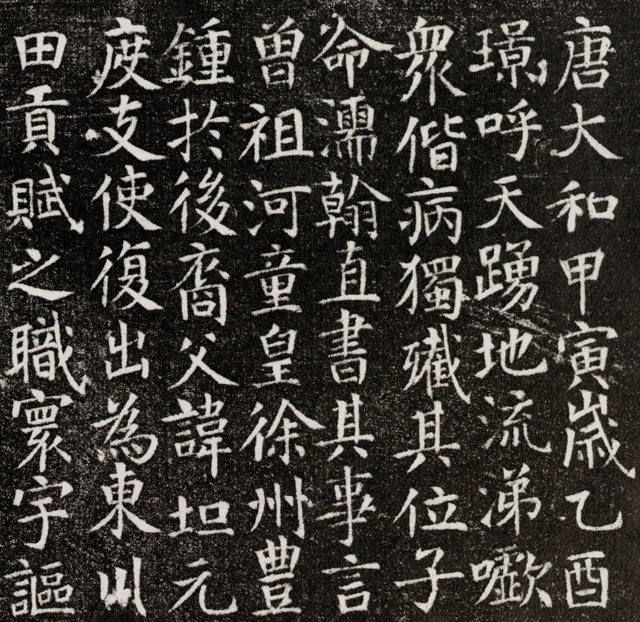 唐大和甲寅歲乙酉
璟呼天踴地流涕
眾偕病獨殱其位子
命濡翰直書其事言
曾祖河童皇徐州豐
鍾於後裔父諱坦元
度支使復出為東川
田貢賦之職寰宇謳